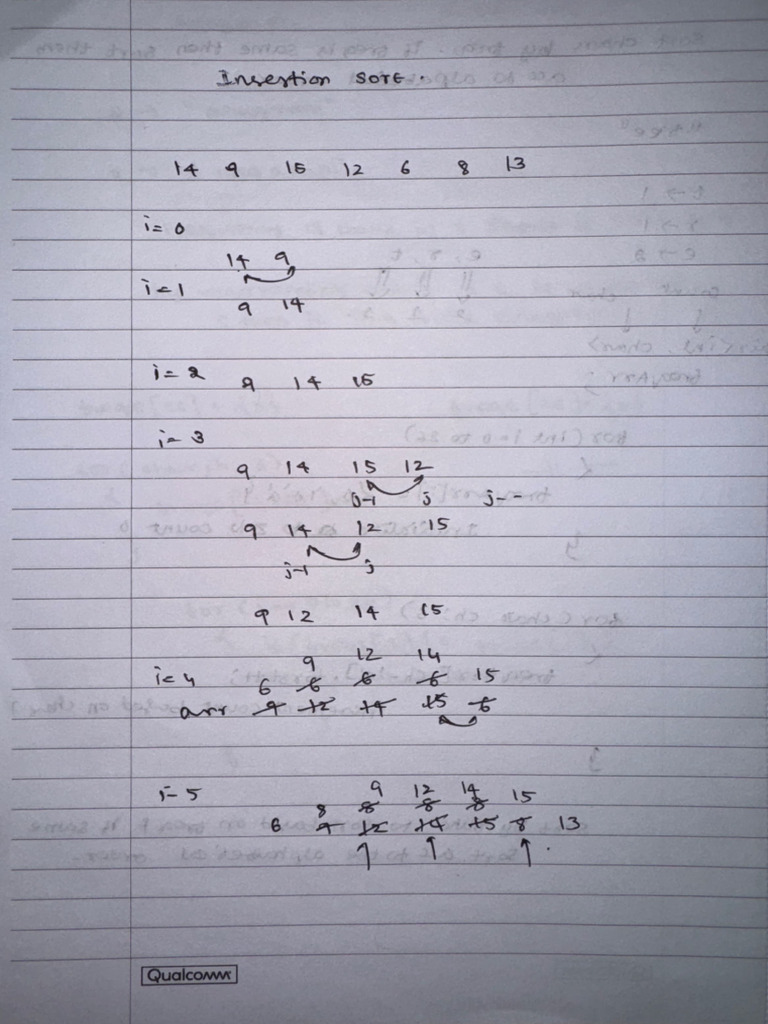 Insertion sort.
14 9 15 12 6 8 13
i= 0
14 9
i= 1
9 14
i= 2
9 14 15
i= 3
9 14 15 12
j-1 j j--
9 14 12 15
j-1 j
9 12 14 15
9 12 14
i= 4 6 6 6 6 15
arr 9 12 14 15 6
i= 5 9 12 14 15
8 8 8 8
6 9 12 14 15 8 13
Qualcomm